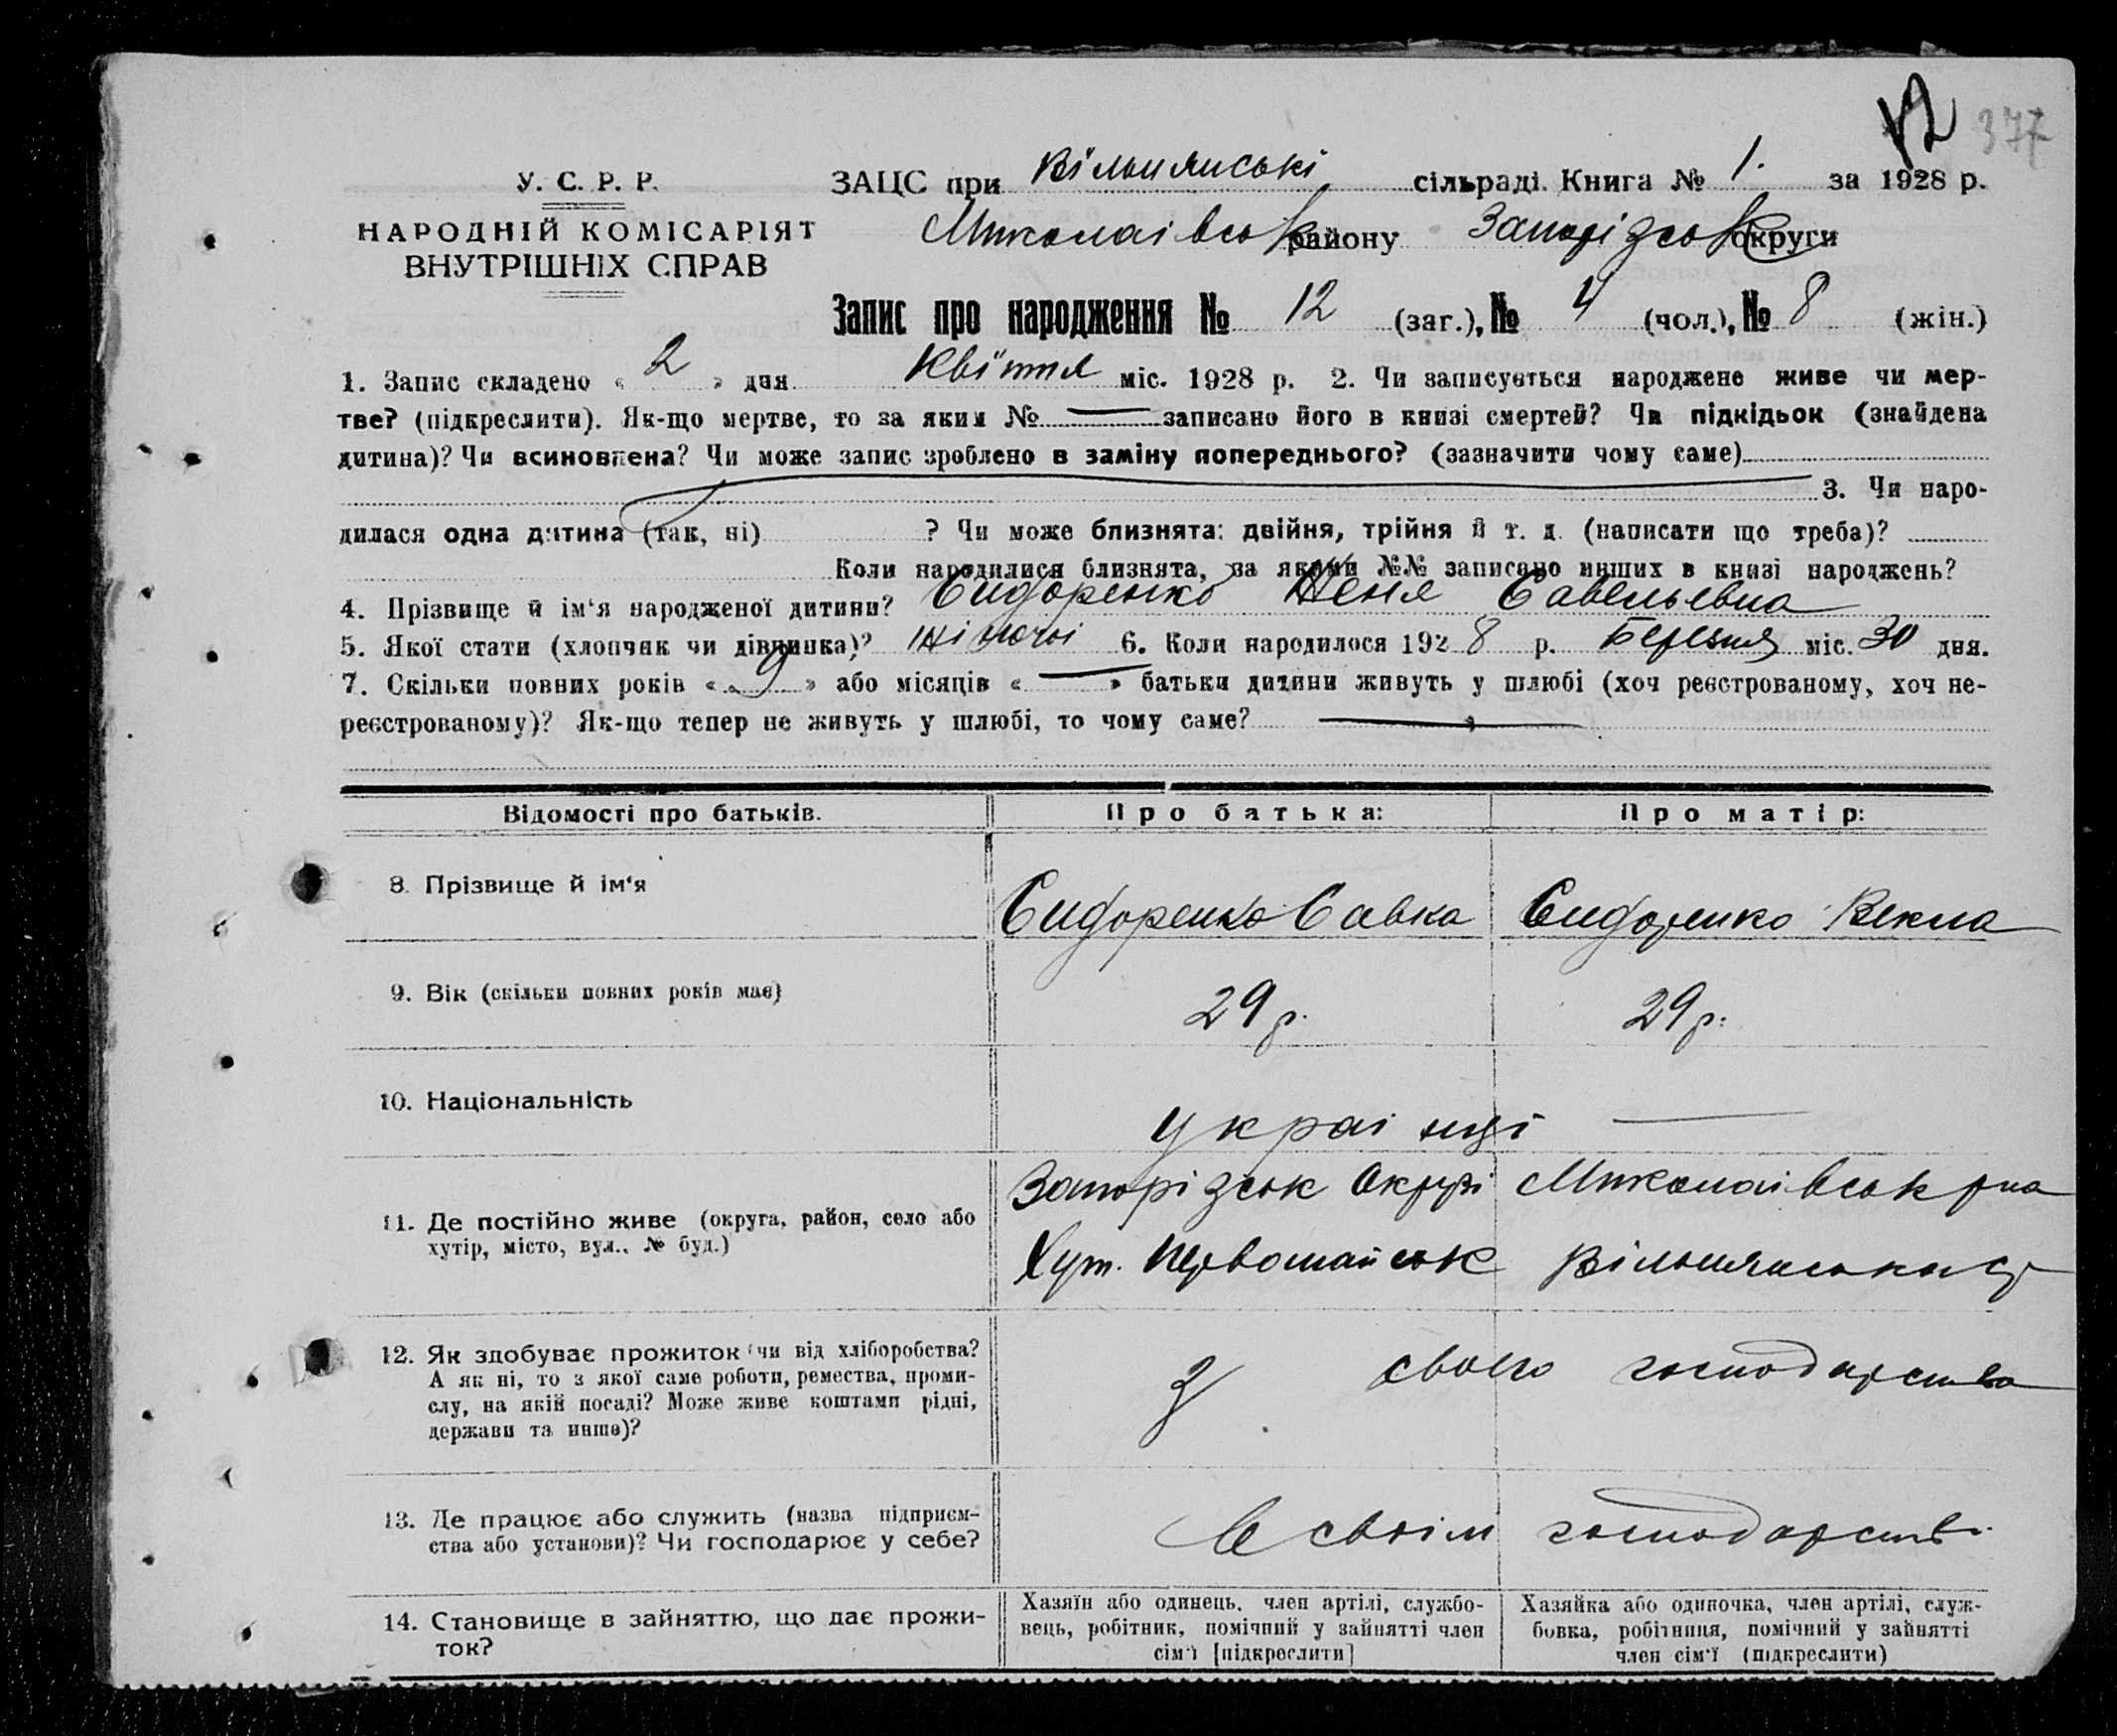 12 377
У. С. Р. Р.
НАРОДНІЙ КОМІСАРІЯТ
ВНУТРІШНІХ СПРАВ
ЗАЦС при Вільнянські сільраді. Книга № 1. за 1928 р.
Миколаівськ району Запорізськ округи
Запис про народження № 12 (заг.), № 4 (чол.), № 8 (жін.)
1. Запис складено « 2 » дня Квітня міс. 1928 р. 2. Чи записується народжене живе чи мер-
тве? (підкреслити). Як-що мертве, то за яким № — записано його в книзі смертей? Чи підкідьок (знайдена
дитина)? Чи всиновлена? Чи може запис зроблено в заміну попереднього? (зазначити чому саме)
3. Чи наро-
дилася одна дитина (так, ні) ? Чи може близнята: двійня, трійня й т. д. (написати що треба)?
Коли народилися близнята, за якими №№ записано инших в книзі народжень?
4. Прізвище й ім‘я народженої дитини? Сидоренко Женя Савельевна
5. Якої стати (хлопчик чи дівчинка)? жіночоі 6. Коли народилося 1928 р. Березня міс. 30 дня.
7. Скільки повних років « 9 » або місяців « — » батьки дитини живуть у шлюбі (хоч реєстрованому, хоч не-
реєстрованому)? Як-що тепер не живуть у шлюбі, то чому саме? —
Відомості про батьків. Про батька: Про матір:
8. Прізвище й ім‘я Сидоренко Савка Сидоренко Векла
9. Вік (скільки повних років має) 29 р. 29 р.
10. Національність украінці —
11. Де постійно живе (округа, район, село або
хутір, місто, вул., № буд.)
Запорізськ Округі Миколаівськ рна
Хут. Первомайськ Вільнянська ср
12. Як здобуває прожиток (чи від хліборобства?
А як ні, то з якої саме роботи, ремества, проми-
слу, на якій посаді? Може живе коштами рідні,
держави та инше)?
З свого господарства
13. Де працює або служить (назва підприєм-
ства або установи)? Чи господарює у себе?
В своім господарстві
14. Становище в зайняттю, що дає прожи-
ток?
Хазяїн або одинець, член артілі, службо-
вець, робітник, помічний у зайнятті член
сім‘ї [підкреслити]
Хазяйка або одиночка, член артілі, служ-
бовка, робітниця, помічний у зайнятті
член сім‘ї (підкреслити)